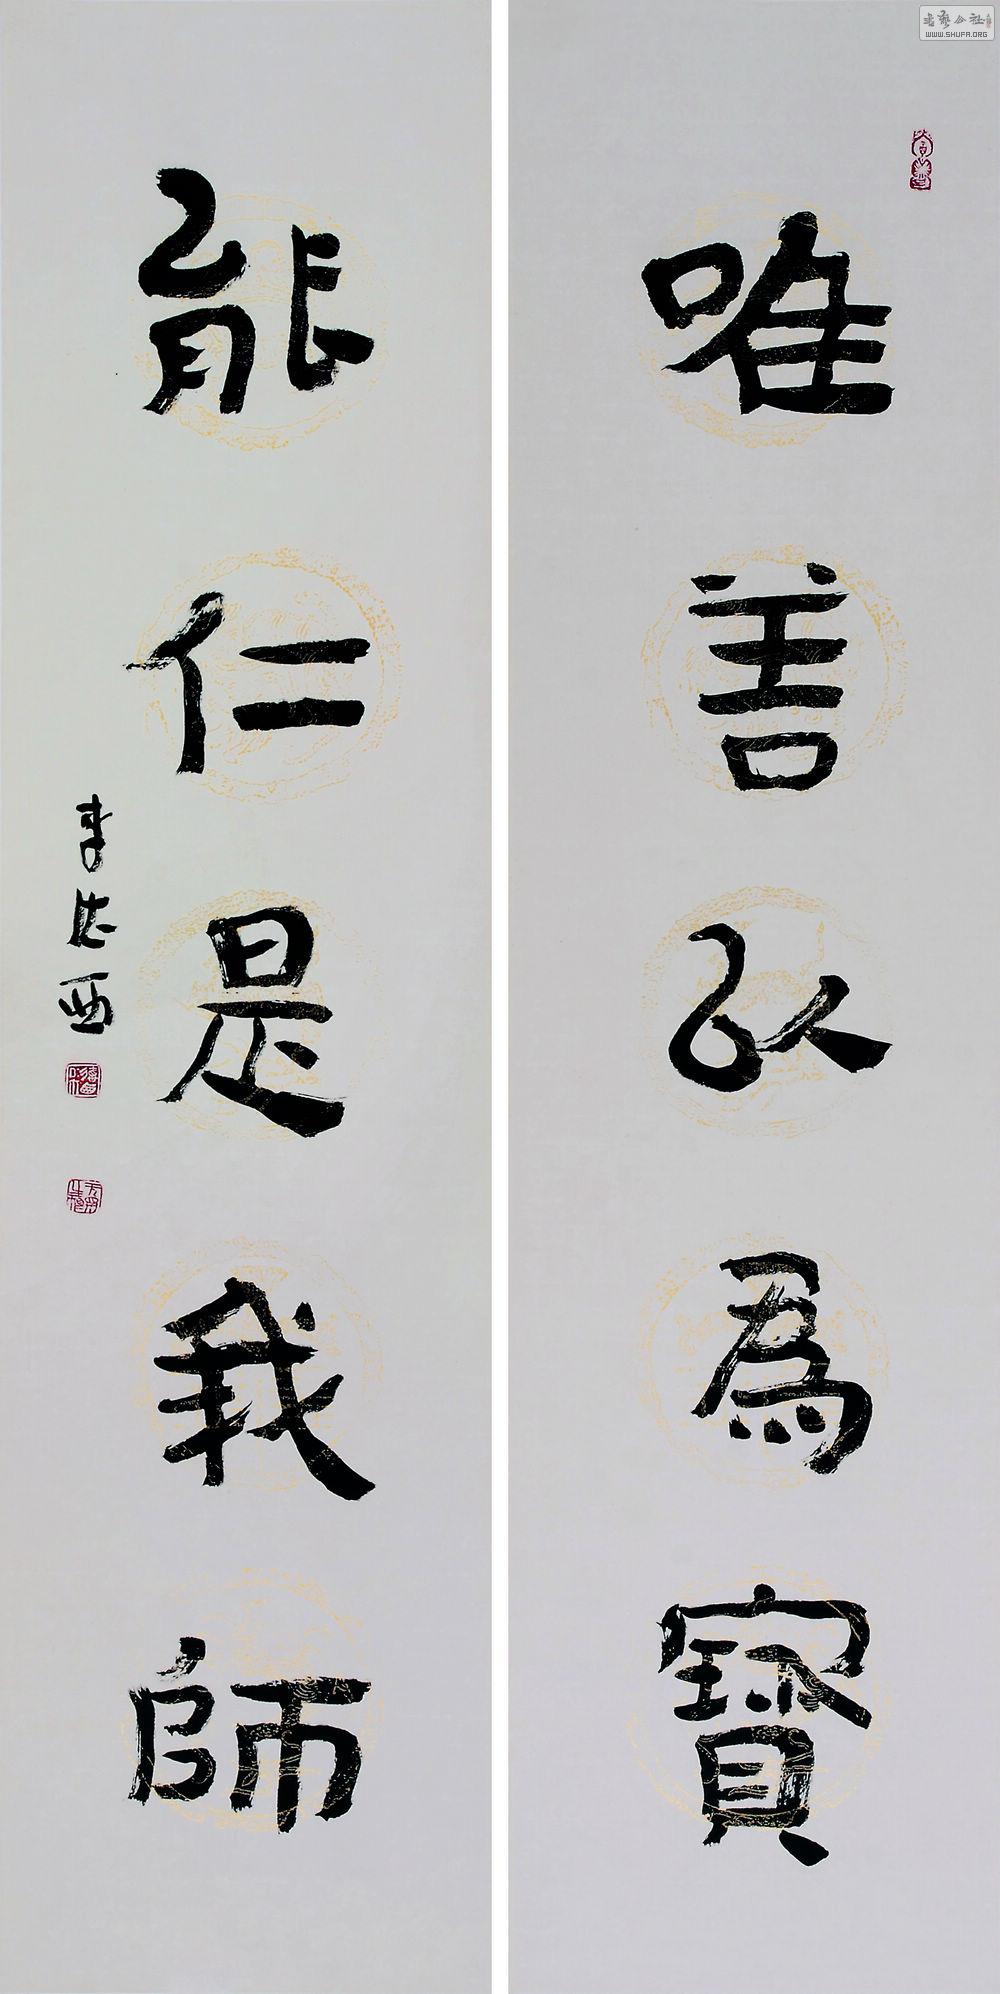 唯善以為寶
能仁是我師
李德西
書藝公社
WWW.SHUFA.ORG